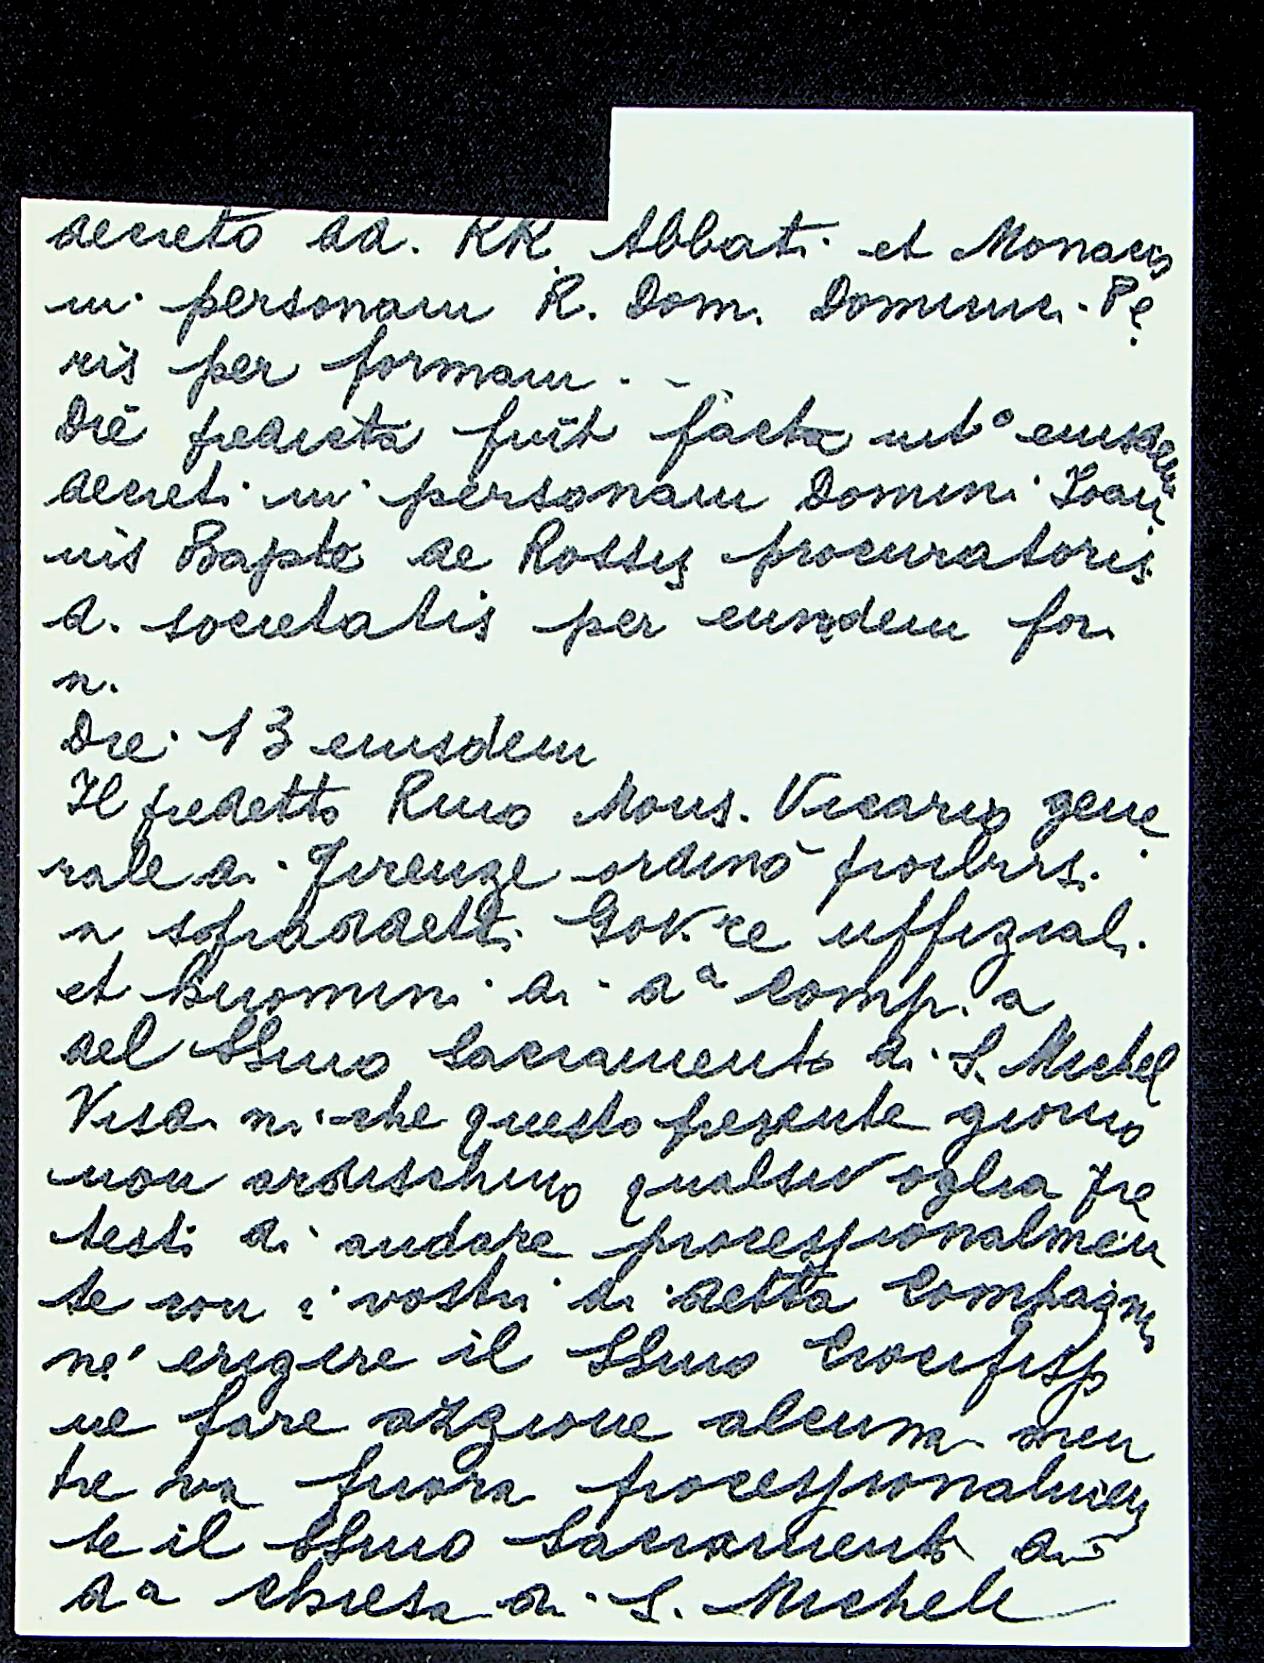 decreto dd. RR. Abbati et Monacis
in personam R. Dom. Domini Pe
ris per formam . -
Die predicta fuit facta int° eiusdem
decreti in personam Domini Ioan
nis Bapte de Rossis procuratoris
d. societatis per eumdem for
m.
Die 13 eiusdem
Il predetto Rmo Mons. Vicario gene
rale di Firenze ordinò proibirsi
a sopraddetti Gov.re uffiziali
et huomini di da Comp.a
del SSmo Sacramento di S. Michel
Visd. ni che questo presente giorno
non ardischino qualsivoglia pre
testi di andare processionalmen
te con i vostri di detta Compagni
né erigere il SSmo Crocifisso
ne fare azzione alcuna men
tre va fuora processionalmen
te il SSmo Sacramento di
da chiesa di S. Michele